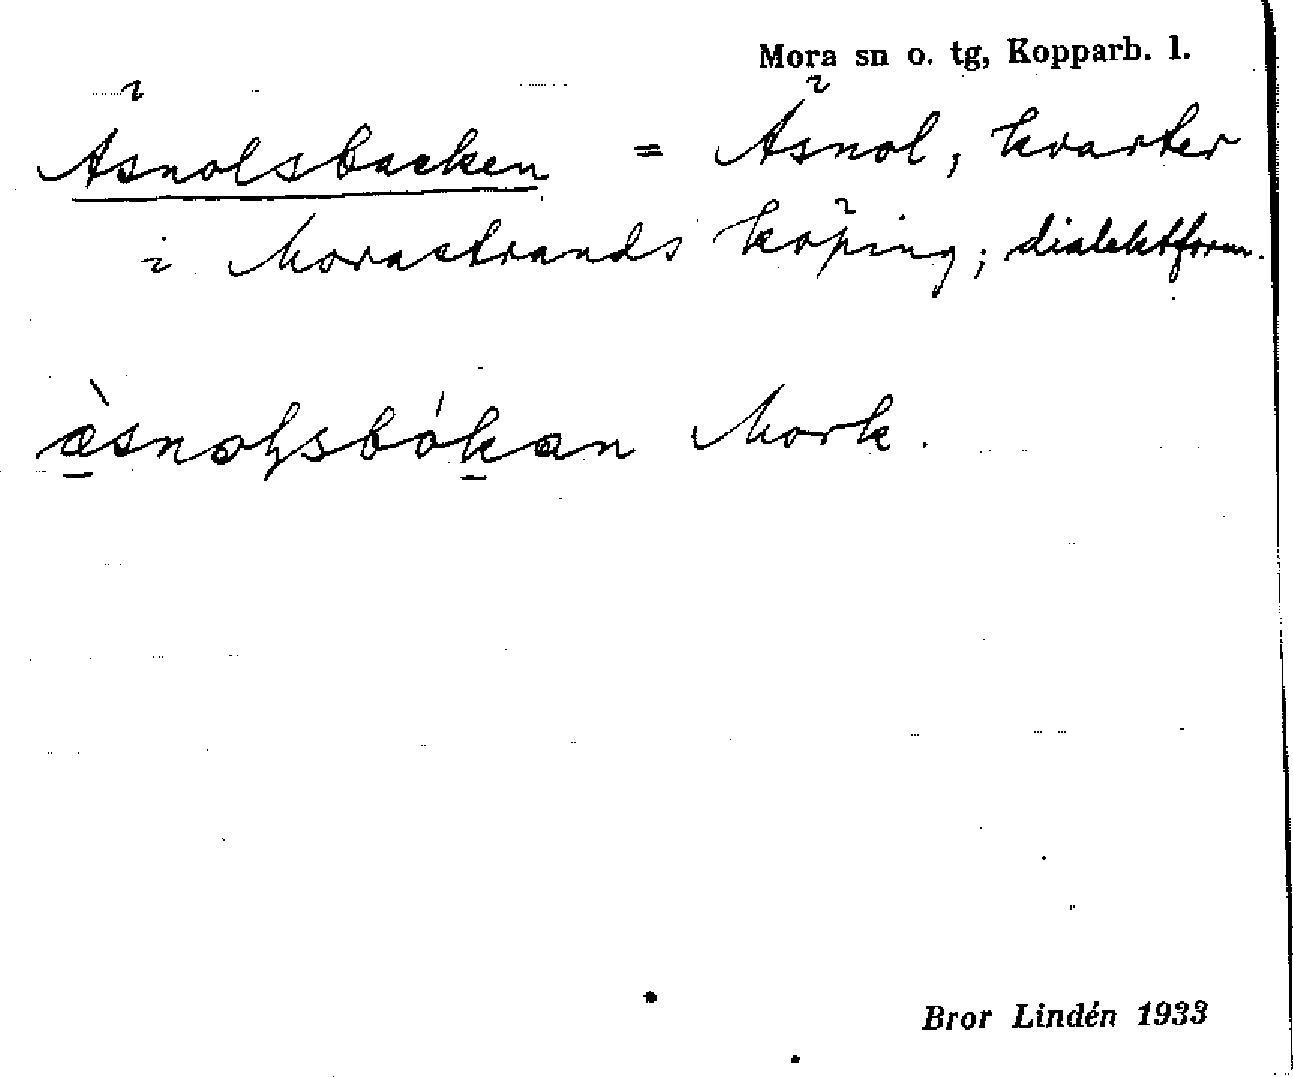 Mora sn o. tg, Kopparb. l.
Äsnolsbacken = Äsnol, kvarter
i Morastrands köping; dialektform.
æ̀snoḷsbókan Mork.
Bror Lindén 1933